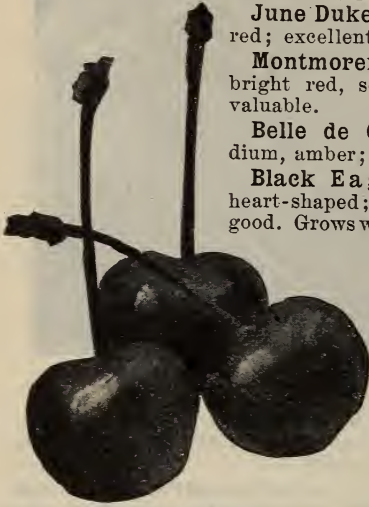 June Duke
red; excellent
Montmore
bright red, s
valuable.
Belle de
dium, amber;
Black Ea
heart-shaped;
good. Grows w